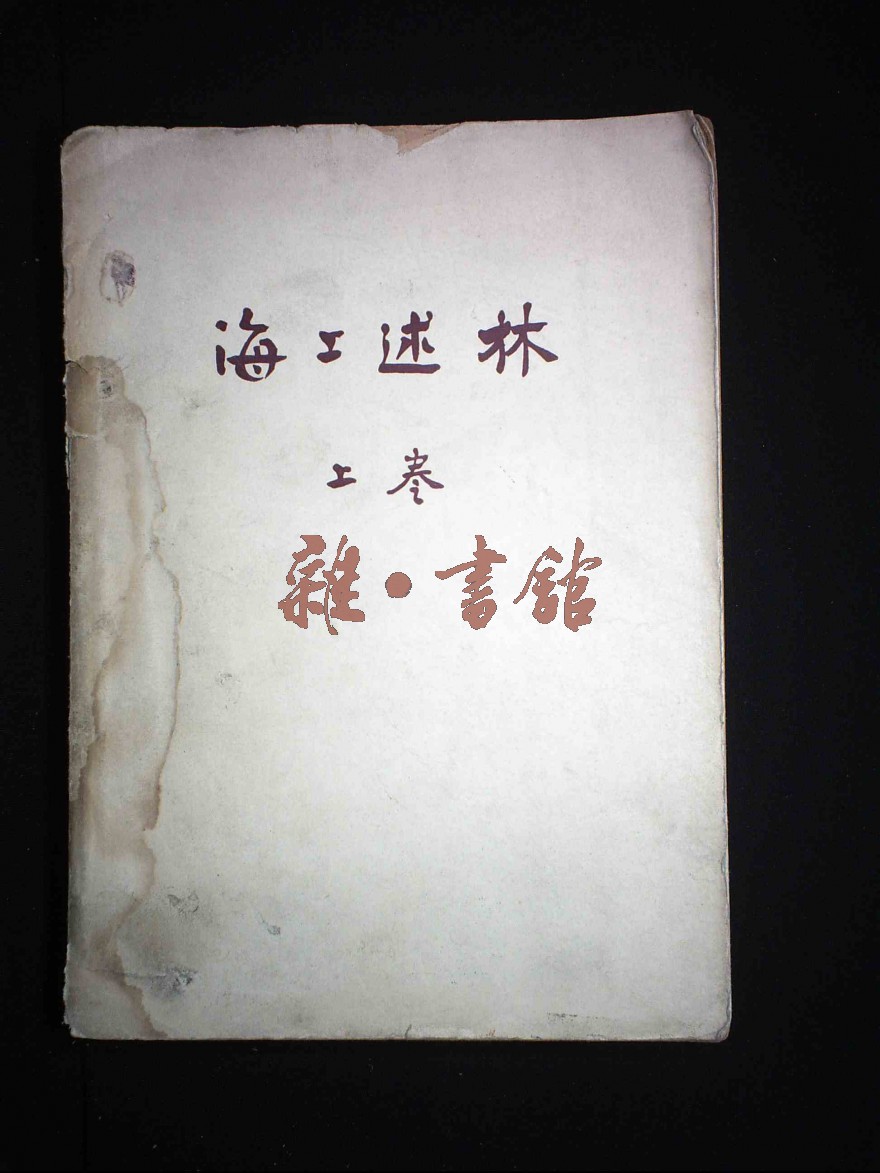 海上述林
上卷
雜·書館